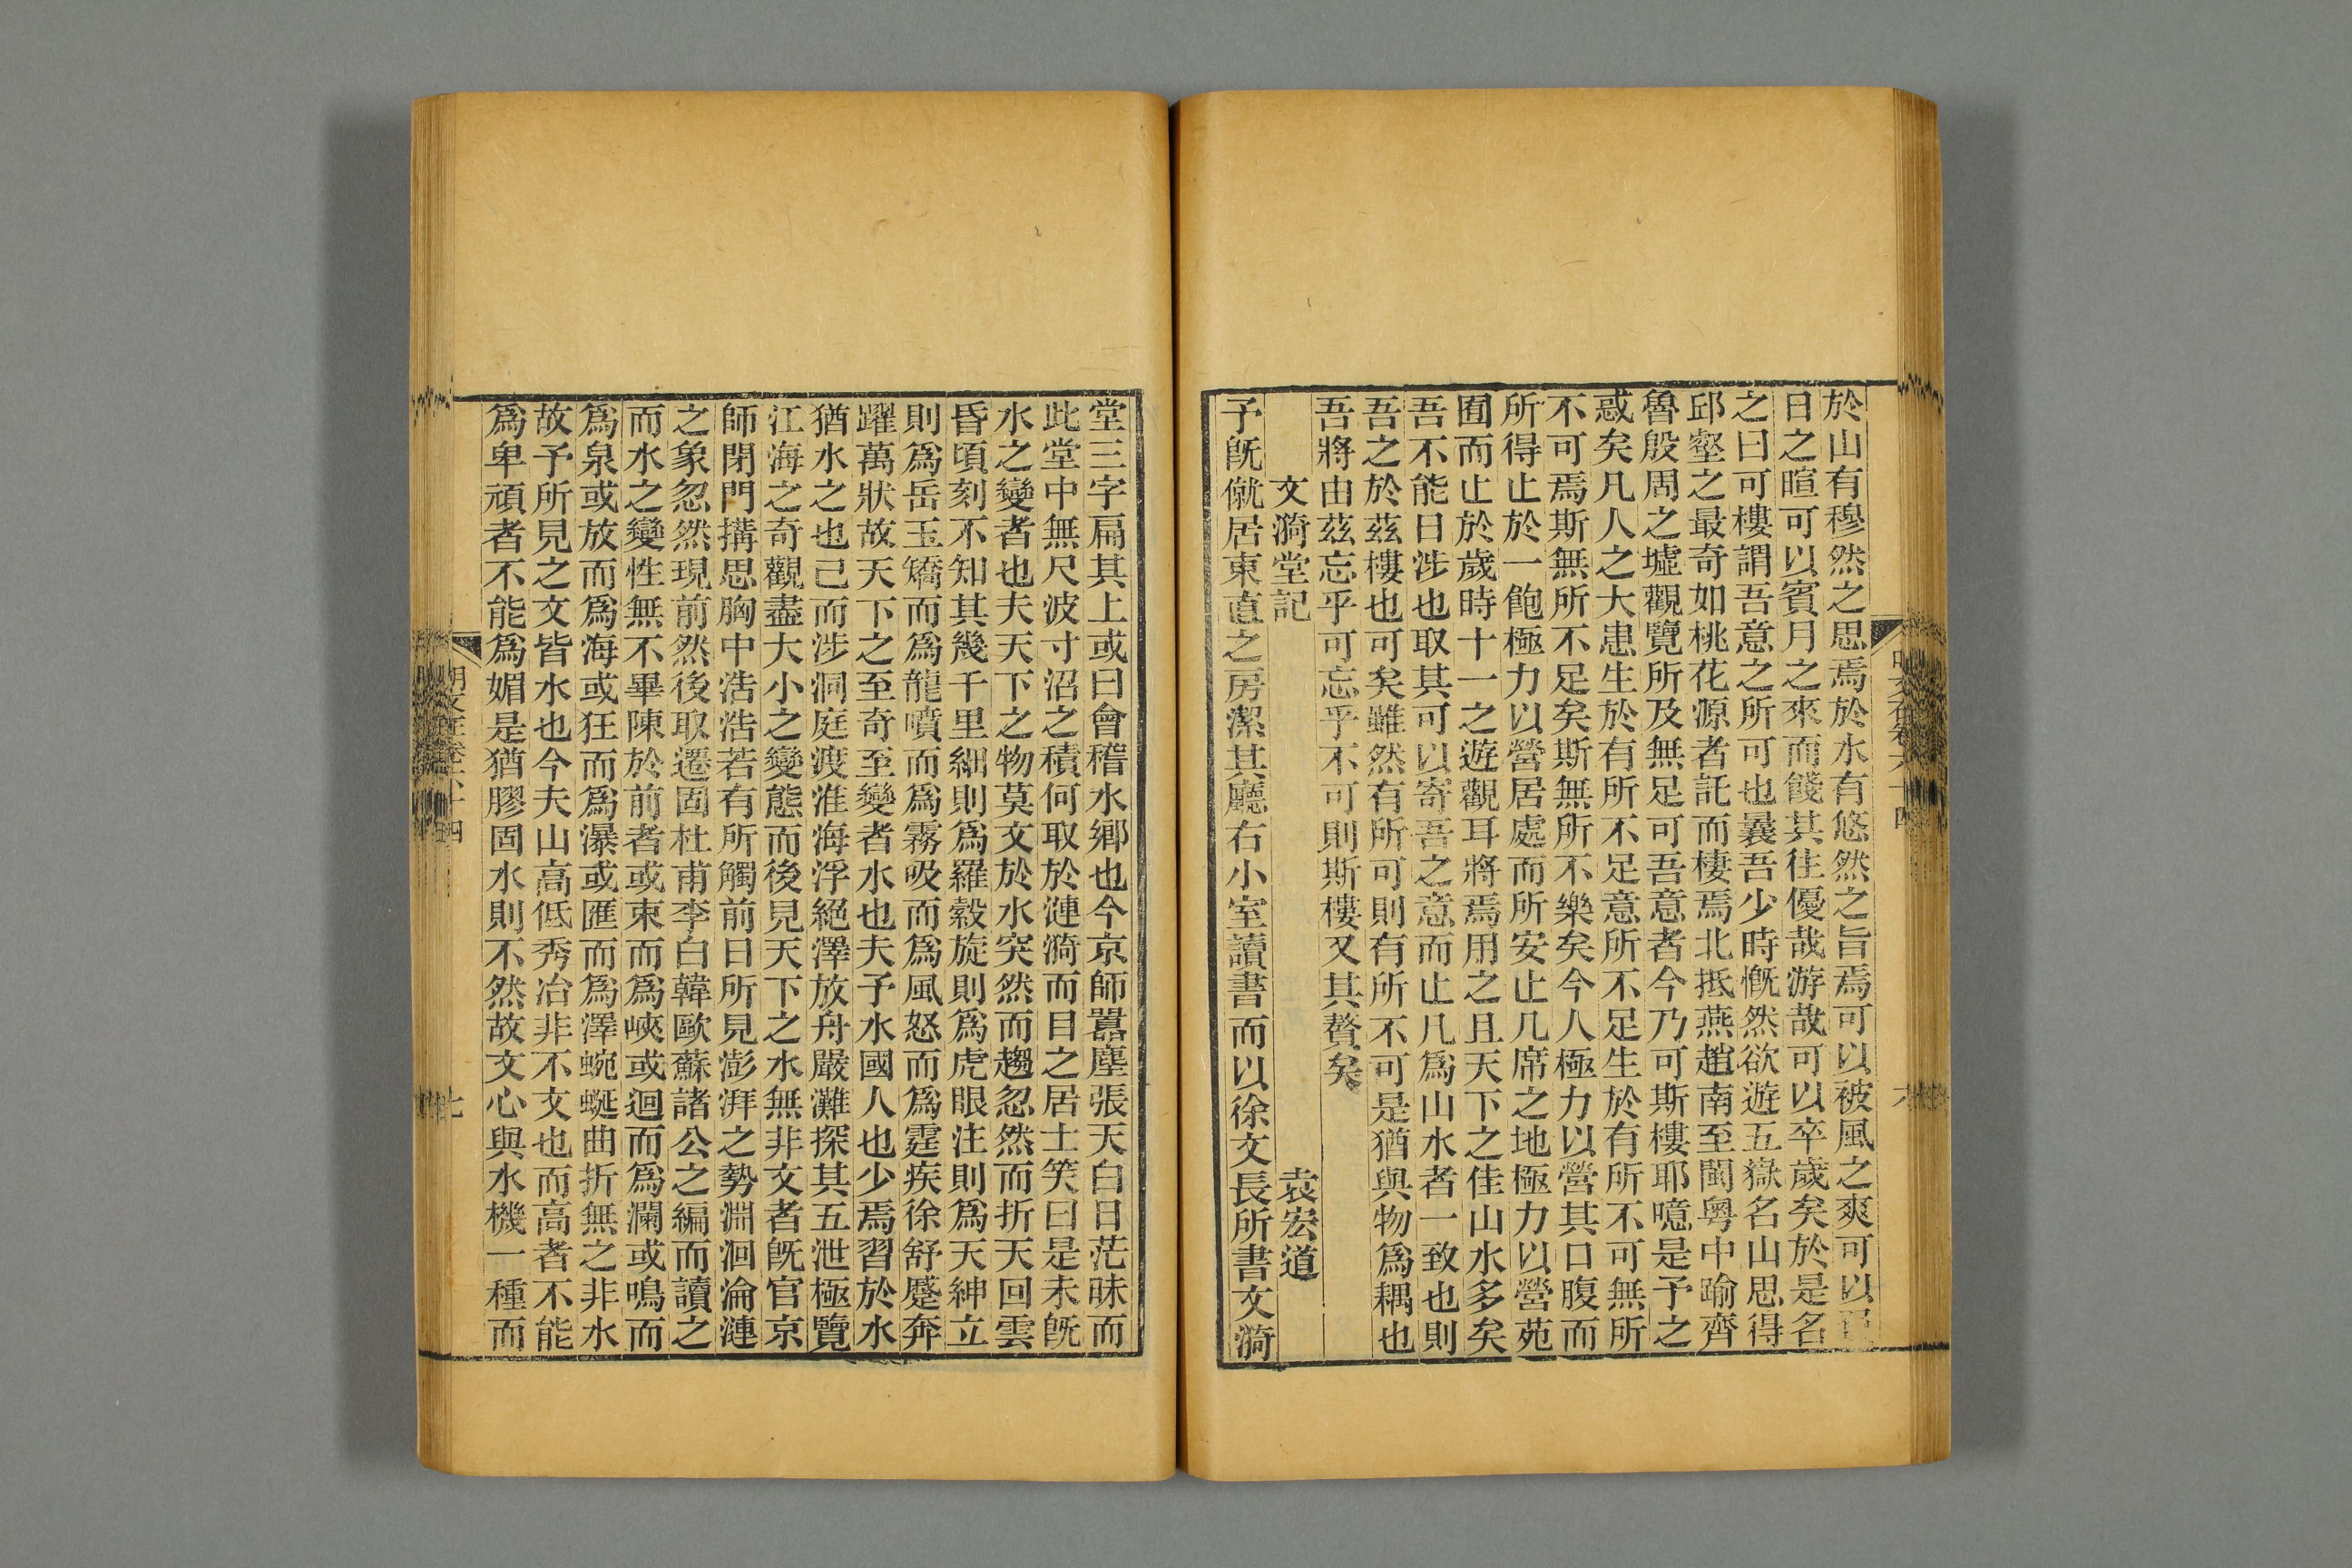 於山有穆然之思焉於水有悠然之旨焉可以被風之爽可以
日之暄可以賓月之來而餞其往優哉游哉可以卒歲矣於是名
之曰可樓謂吾意之所可也曩吾少時慨然欲遊五嶽名山思得
邱壑之最奇如桃花源者託而棲焉北抵燕趙南至閩粤中踰齊
魯殷周之墟觀覽所及無足可吾意者今乃可斯樓耶噫是予之
惑矣凡人之大患生於有所不足意所不足生於有所不可無所
不可焉斯無所不足矣斯無所不樂矣今人極力以營其口腹而
所得止於一飽極力以營居處而所安止几席之地極力以營苑
囿而止於歲時十一之遊觀耳將焉用之且天下之佳山水多矣
吾不能日涉也取其可以寄吾之意而止凡爲山水者一致也則
吾之於茲樓也可矣雖然有所可則有所不可是猶與物爲耦也
吾將由茲忘乎可忘乎不可則斯樓又其贅矣
文漪堂記 袁宏道
予旣僦居東直之房潔其廳右小室讀書而以徐文長所書文漪
堂三字扁其上或曰會稽水鄉也今京師囂塵張天白日茫昧而
此堂中無尺波寸沼之積何取於漣漪而目之居士笑曰是未旣
水之變者也夫天下之物莫文於水突然而趨忽然而折天回雲
昏頃刻不知其幾千里細則爲羅縠旋則爲虎眼注則爲天紳立
則爲岳玉矯而爲龍噴而爲霧吸而爲風怒而爲霆疾徐舒蹙奔
躍萬狀故天下之至奇至變者水也夫予水國人也少焉習於水
猶水之也己而涉洞庭渡淮海浮絕澤放舟嚴灘探其五泄極覽
江海之奇觀盡大小之變態而後見天下之水無非文者旣官京
師閉門搆思胸中浩浩若有所觸前日所見澎湃之勢淵洄淪漣
之象忽然現前然後取遷固杜甫李白韓歐蘇諸公之編而讀之
而水之變性無不畢陳於前者或束而爲峽或迴而爲瀾或鳴而
爲泉或放而爲海或狂而爲瀑或匯而爲澤蜿蜒曲折無之非水
故予所見之文皆水也今夫山高低秀冶非不文也而高者不能
爲卑頑者不能爲媚是猶膠固水則不然故文心與水機一種而
七